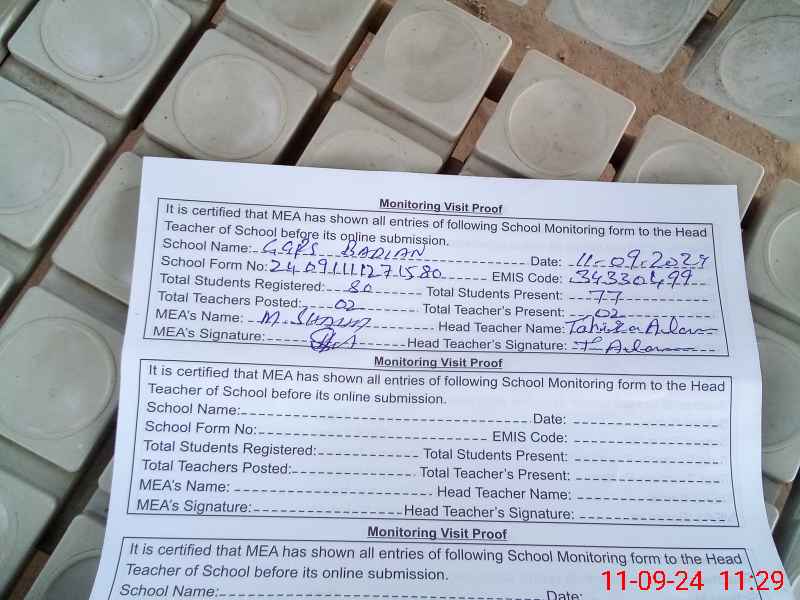 Monitoring Visit Proof
It is certified that MEA has shown all entries of following School Monitoring form to the Head
Teacher of School before its online submission.
School Name: GGPS BADIAN Date: 11-09-2024
School Form No: EMIS Code: 34330499
Total Students Registered: 80 Total Students Present: 77
Total Teachers Posted: 02 Total Teacher's Present: 02
MEA's Name: M. Head Teacher Name: Tahira
MEA's Signature: Head Teacher's Signature:
Monitoring Visit Proof
It is certified that MEA has shown all entries of following School Monitoring form to the Head
Teacher of School before its online submission.
School Name: Date:
School Form No: EMIS Code:
Total Students Registered: Total Students Present:
Total Teachers Posted: Total Teacher's Present:
MEA's Name: Head Teacher Name:
MEA's Signature: Head Teacher's Signature:
Monitoring Visit Proof
It is certified that MEA has shown all entries of following School Monitoring form to the Head
Teacher of School before its online submission.
School Name: Date:
11-09-24 11:29